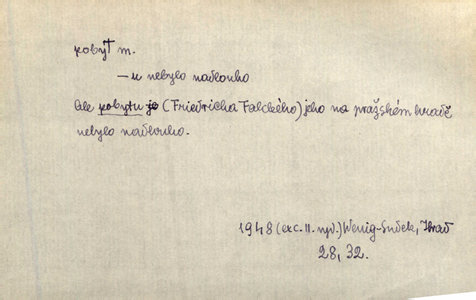 pobyt m.
— u nebylo nadlouho
Ale pobytu (Friedricha Falckého) jeho na pražském hradě
nebylo nadlouho.
1948 (exc. II. vyd.) Wenig-Suček, Hrad
28, 32.